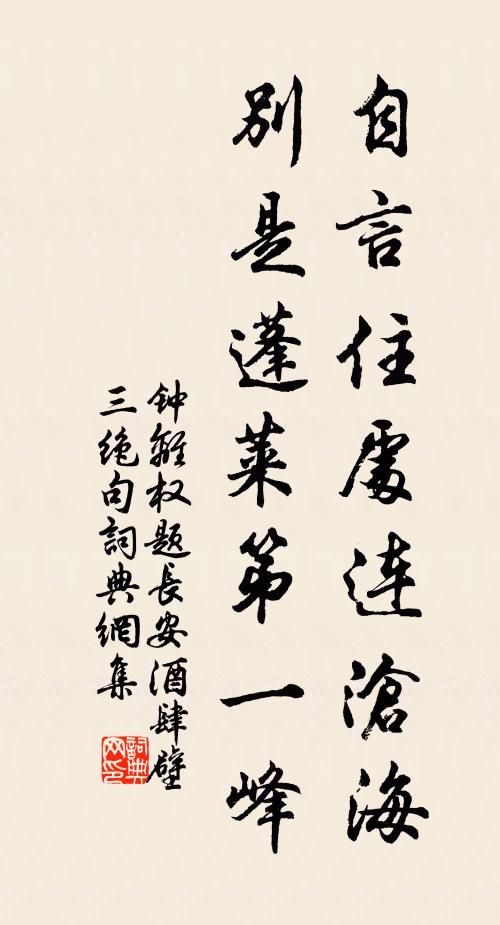 自言住處连滄海
别是蓬莱第一峰
钟離权題長安酒肆壁
三绝句詞典網集
詞典
网印